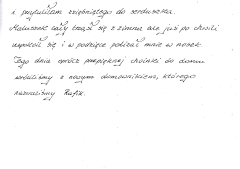 i przytuliłam zziębniętego do serduszka.
Maluszek cały trząsł się z zimna ale już po chwili
uspokoił się i w podzięce polizał mnie w nosek.
Tego dnia oprócz przepięknej choinki do domu
wróciliśmy z nowym domownikiem, którego
nazwaliśmy Rafik.